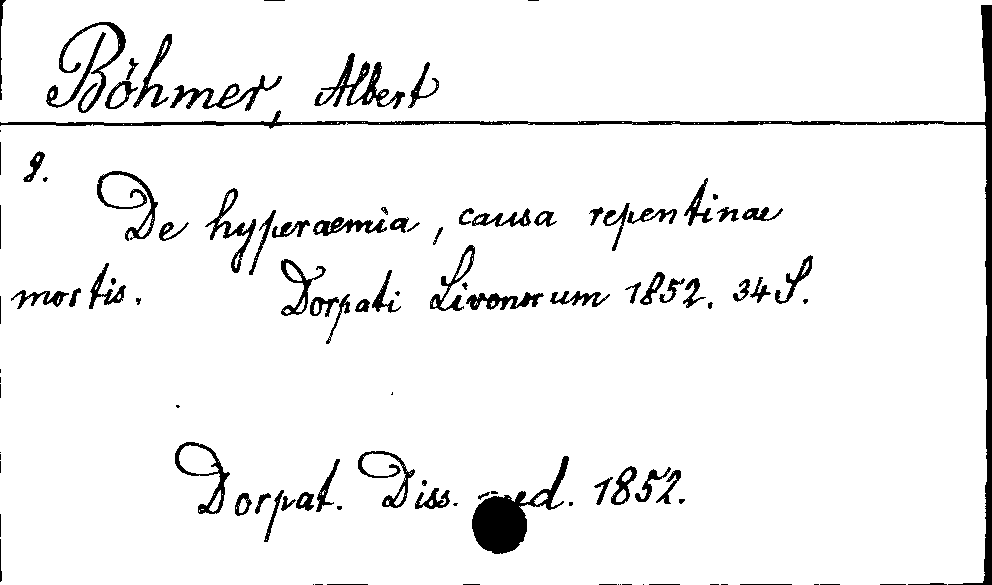 Böhmer, Albert
8.
De hyperaemia, causa repentinae
mortis. Dorpati Livonorum 1852. 34 S.
Dorpat. Diss. med. 1852.